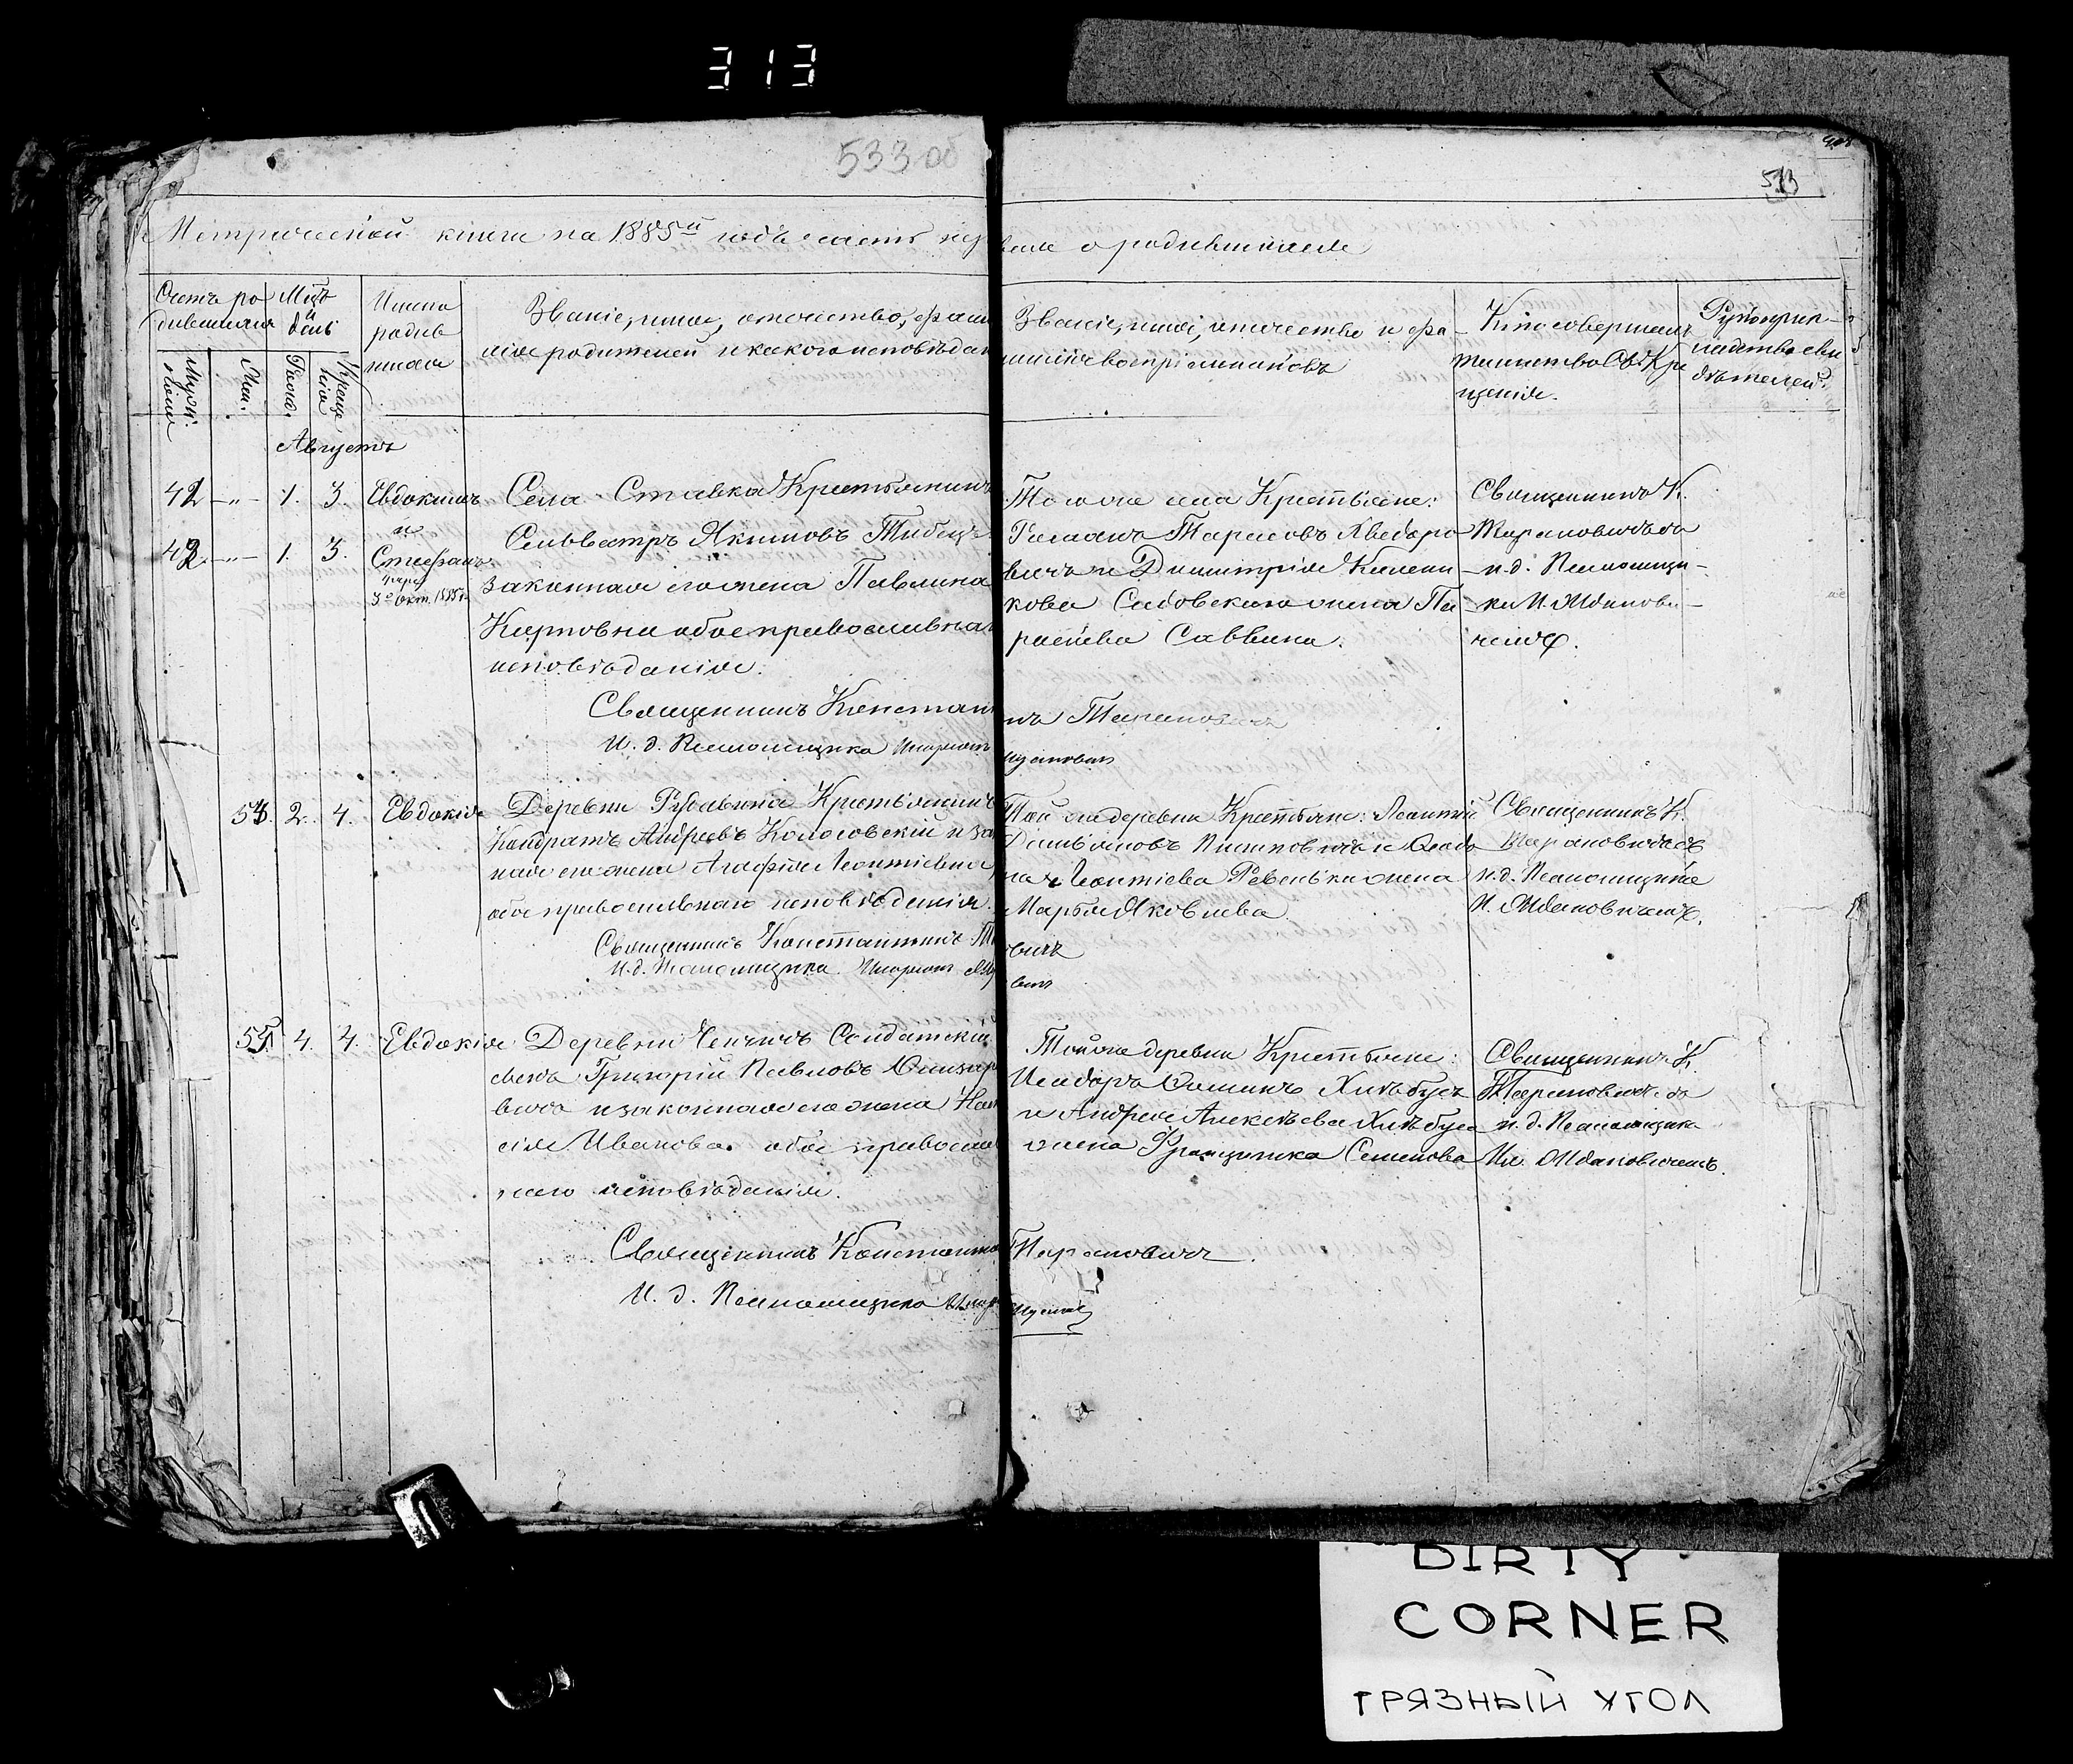 313
533 об
533
Метрической книги на 1885й годъ часть первая о родившихся
Счетъ ро
дившихся
Мцъ
и
день
Имена
родив
шихся
Званіе, имя, отчество, фами
лія родителей и какого исповѣдан
Званіе, имя, отчество и фа-
миліи воспріемниковъ
Кто совершалъ
таинство Св. Кре
щенія.
Рукоприк-
ладство сви
дѣтелей.
Мужск.
пола
Жен.
Рожд.
Креще
нія
Августъ
42 — „ — 1. 3. Евдокимъ
и
42. — „ — 1. 3. Стефанъ
умре
3го Окт. 1885 г.
Села Ставка Крестьянинъ
Сельвестръ Якимовъ
законная его жена Павлина
Карповна обое православна
исповѣданія.
Того же села Крестьяне:
Романъ Тарасовъ Хведоро
вичъ и Димитрія
Садовскаго жена Па
раскева Саввина.
Священникъ К.
Тарановичъ съ
и. д. Псаломщи-
ка И. Ждановы-
чемъ.
Священникъ Констан
нъ Таранович
И. д. Псаломщика Иларіонъ
54. 2. 4. Евдокія
Деревни Крестьянинъ
Кондратъ Андреевъ Колосовскій и за
ная его жена Агафія Леонтіевна
обое православнаго исповѣданія.
Той же деревни Крестьяне: Леонтій
Демьяновъ и
Леонтіева жена
Марѳа Яковлева
Священникъ К.
Тарановичъ съ
и. д. Псаломщика
И. Ждановичемъ.
Священникъ Константинъ Т
овичъ
И. д. Псаломщика Иларіонъ
вичъ
55. 4. 4. Евдокія
Деревни Солдатскій
сынъ Григорій Павловъ
вичъ и законная его жена
сія Иванова. обое православ
наго исповѣданія.
Той же деревни Крестьяне:
Исидоръ Хилъбусъ
и Андрея Алексѣева Хилъбуса
жена Францишка Семенова
Священникъ К.
Тарановичъ съ
и. д. Псаломщика
Ил. Ждановичемъ.
Священникъ Константи
Тарановичъ.
И. д. Псаломщика Илар
DIRTY
CORNER
ГРЯЗНЫЙ УГОЛ